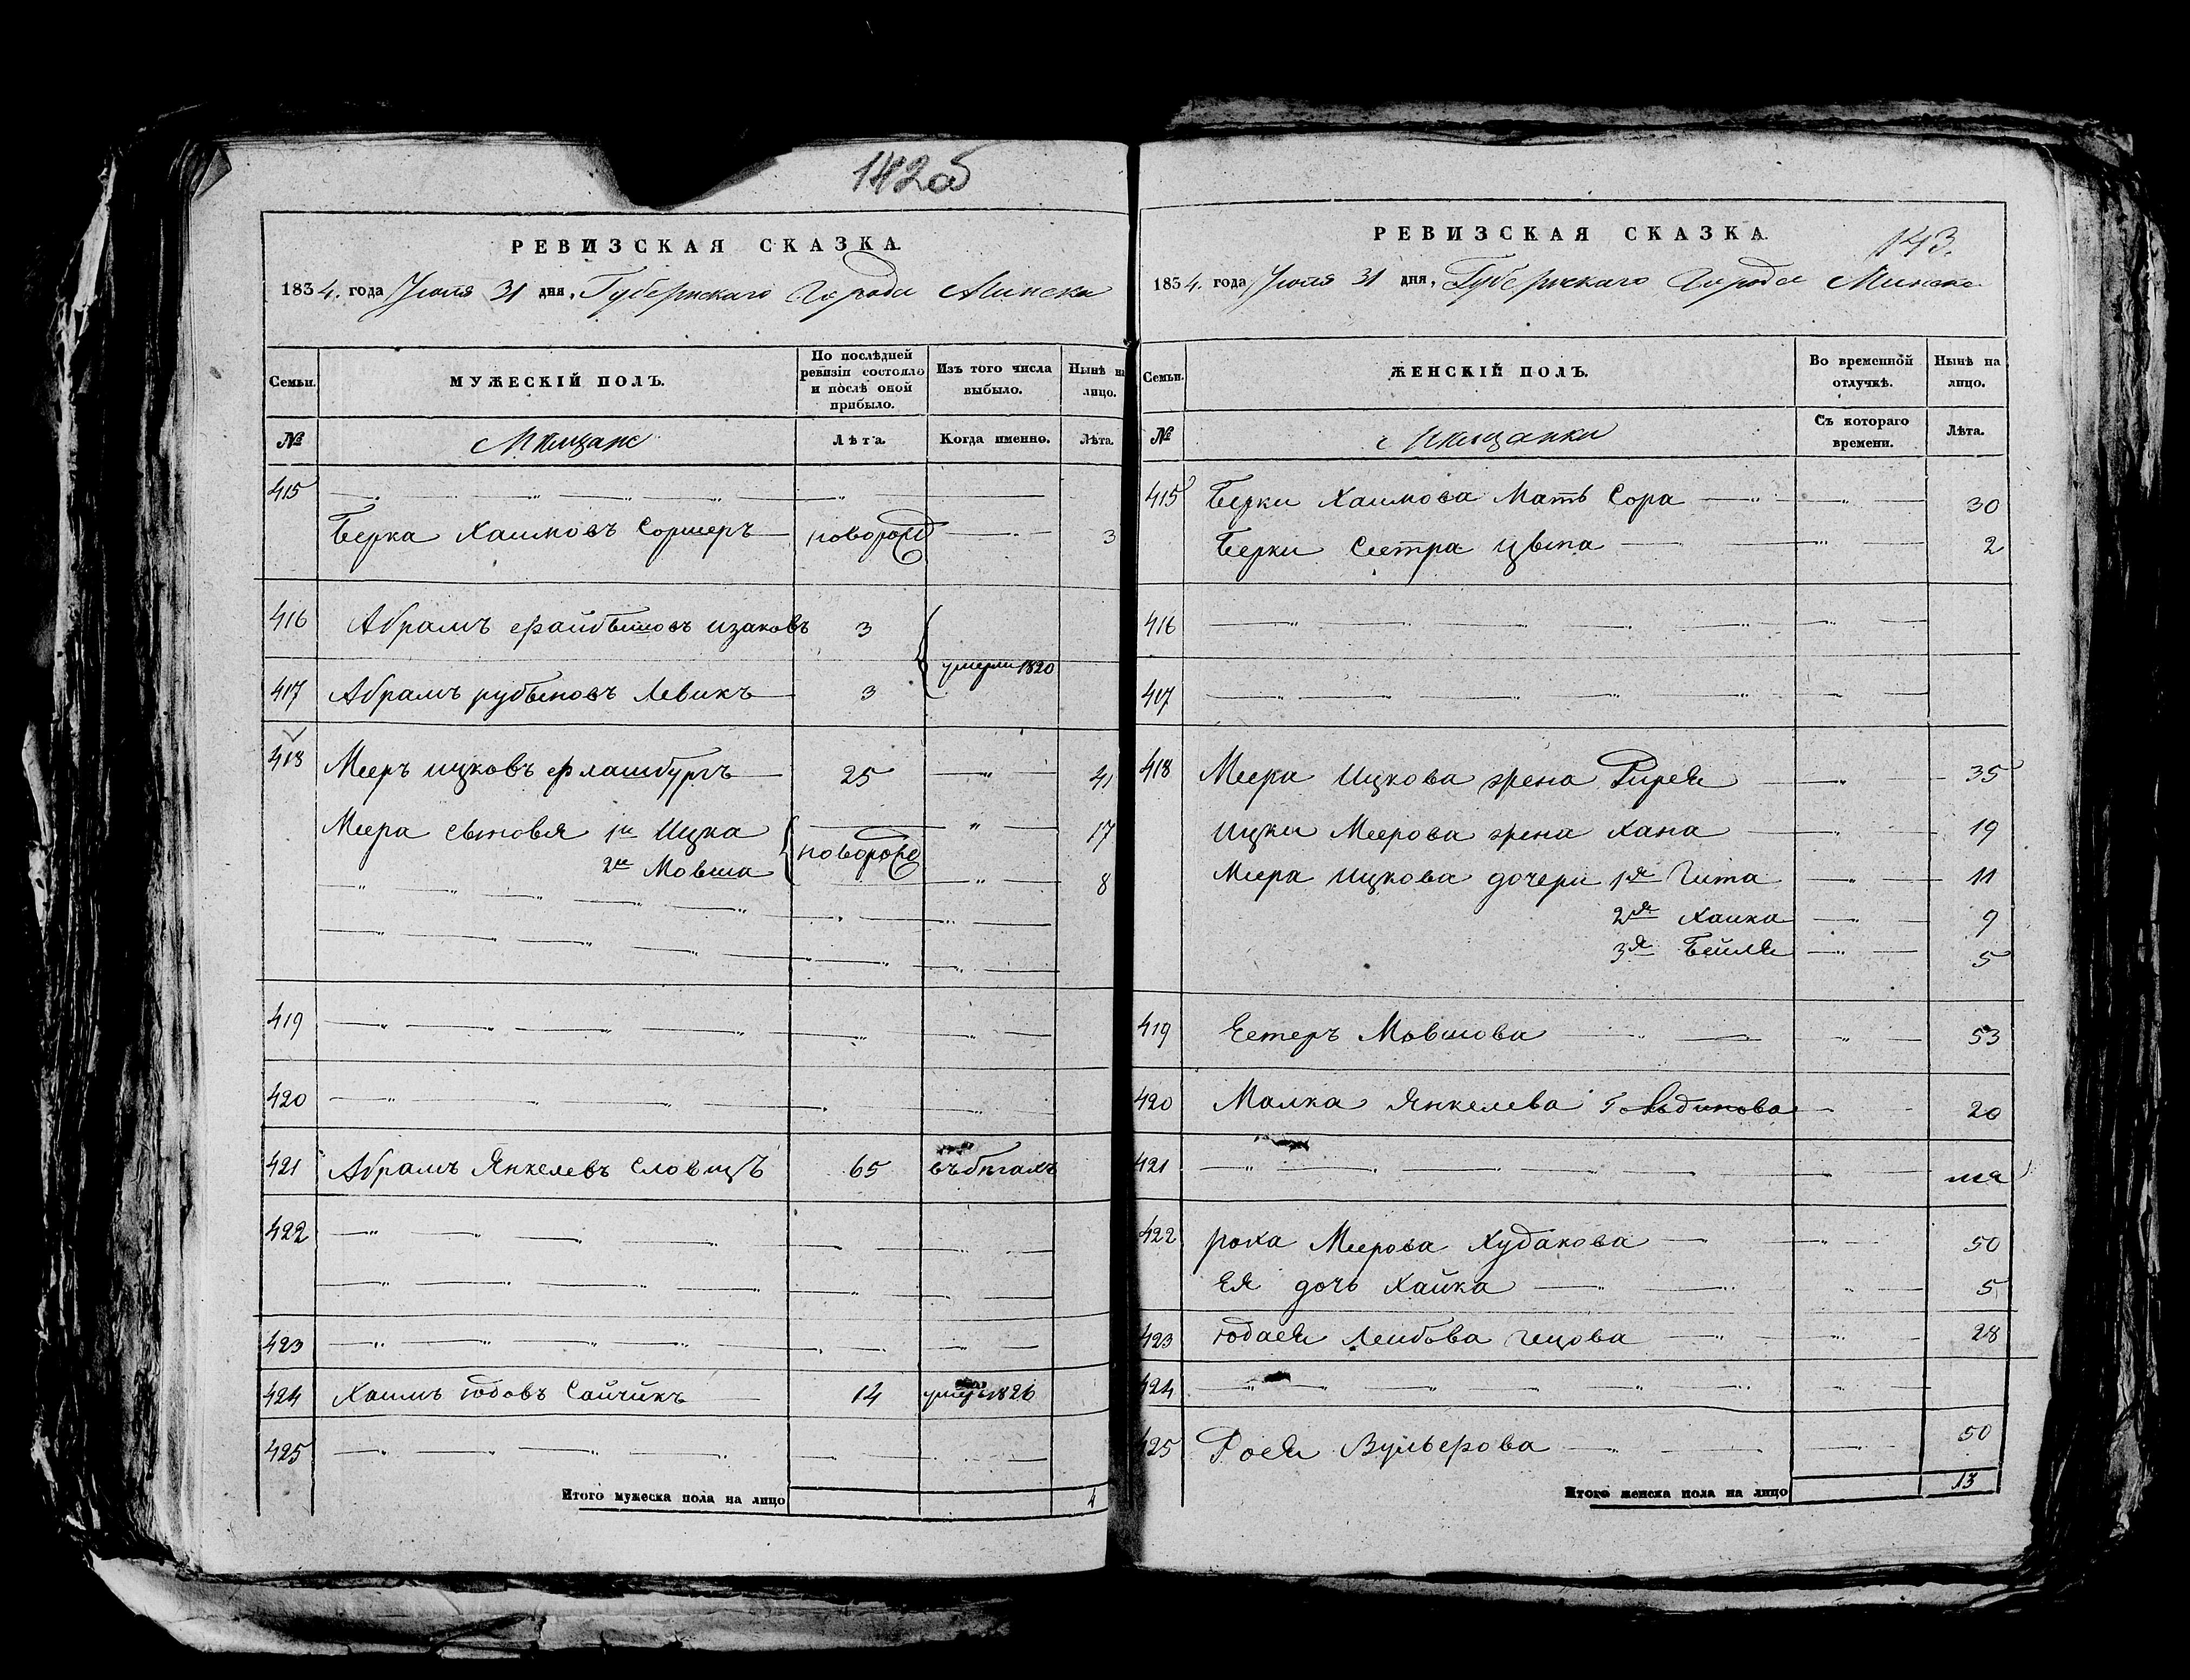 142об
РЕВИЗСКАЯ СКАЗКА.
1834. года Іюля 31 дня, Губернскаго Города Минска
Семьи.
МУЖЕСКІЙ ПОЛЪ.
По послѣдней ревизіи состояло и послѣ оной прибыло.
Изъ того числа выбыло.
Нынѣ на лицо.
№
Мѣщане
Лѣта.
Когда именно.
Лѣта.
415
Берка Хаимовъ Соршеръ новорожд 3
416 Абрамъ Файбишовъ изаковъ 3
умерли 1820
417 Абрамъ рубѣновъ Левикъ 3
418 Мееръ ицковъ Флашбургъ 25 41
Меера сыновья 1й Ицка 17
новорожд
2й Мовша 8
419
420
421 Абрамъ Янкелевъ 65 въ бѣгахъ
422
423
424 Хаимъ юдовъ Сайчикъ 14 умеръ 1826
425
Итого мужеска пола на лицо 4
РЕВИЗСКАЯ СКАЗКА.
143.
1834. года Іюля 31 дня, Губернскаго Города Минска
Семьи.
ЖЕНСКІЙ ПОЛЪ.
Во временной отлучкѣ.
Нынѣ на лицо.
№
Мѣщанки
Съ котораго времени.
Лѣта.
415 Берки Хаимова Мать Сора 30
Берки Сестра Цвѣпа 2
416
417
418 Меера Ицкова жена 35
Ицки Меерова жена Хана 19
Меера Ицкова дочери 1я Гита 11
2я Хаика 9
3я Бейля 5
419 Естеръ Мовшова 53
420 Малка Янкелева Гольдинова 20
421
422 роха Меерова Худакова 50
Ея дочь Хайка 5
423 Лейбова 28
424
425 Рося 50
Итого женска пола на лицо 13